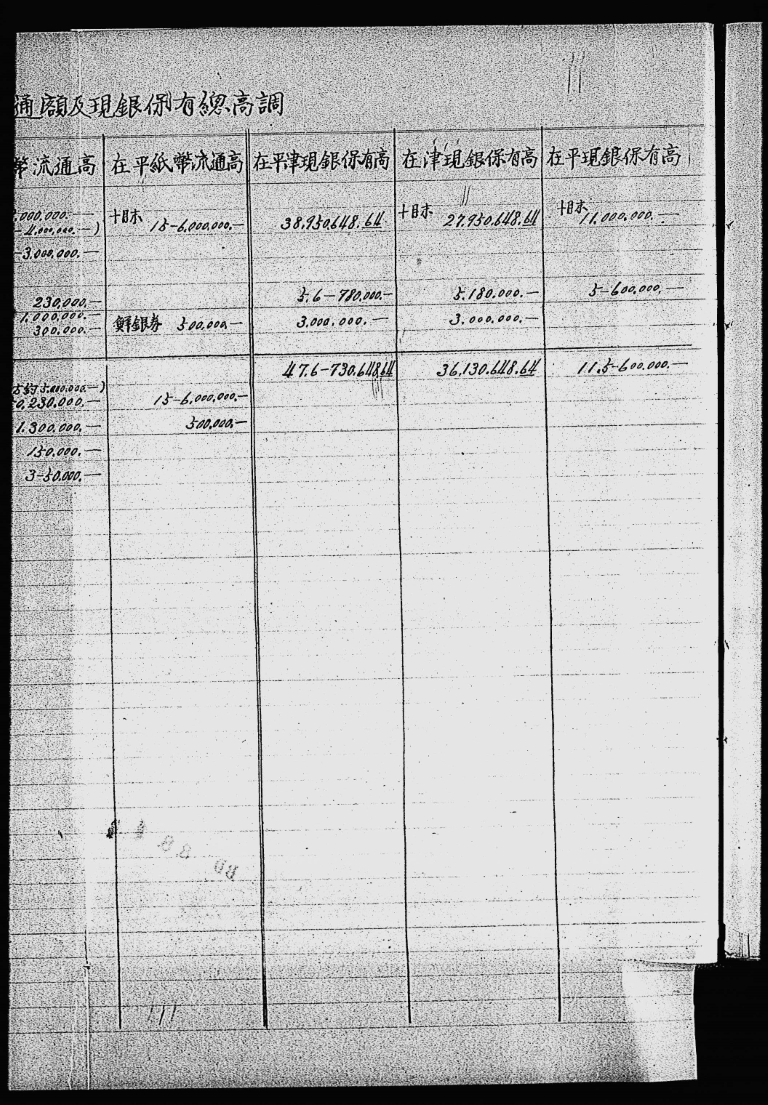 通額及現銀保有總高調
幣流通高 在平紙幣流通高 在平津現銀保有高 在津現銀保有高 在平現銀保有高
,000,000.— 十日末 15-6,000,000.— 38,950,648.64 十日末 27,950,648.64 十日末 11,000,000.—
-4,000,000.—)
-3,000,000.—
230,000.— 5.6-780,000.— 5,180,000.— 5-600,000.—
1,000,000.—
300,000.— 鮮銀券 500,000.— 3,000,000.— 3,000,000.—
47.6-730,648.64 36,130,648.64 11.5-600,000.—
5,000,000.—)
0,230,000.— 15-6,000,000.—
1,300,000.— 500,000.—
150,000.—
3-50,000.—